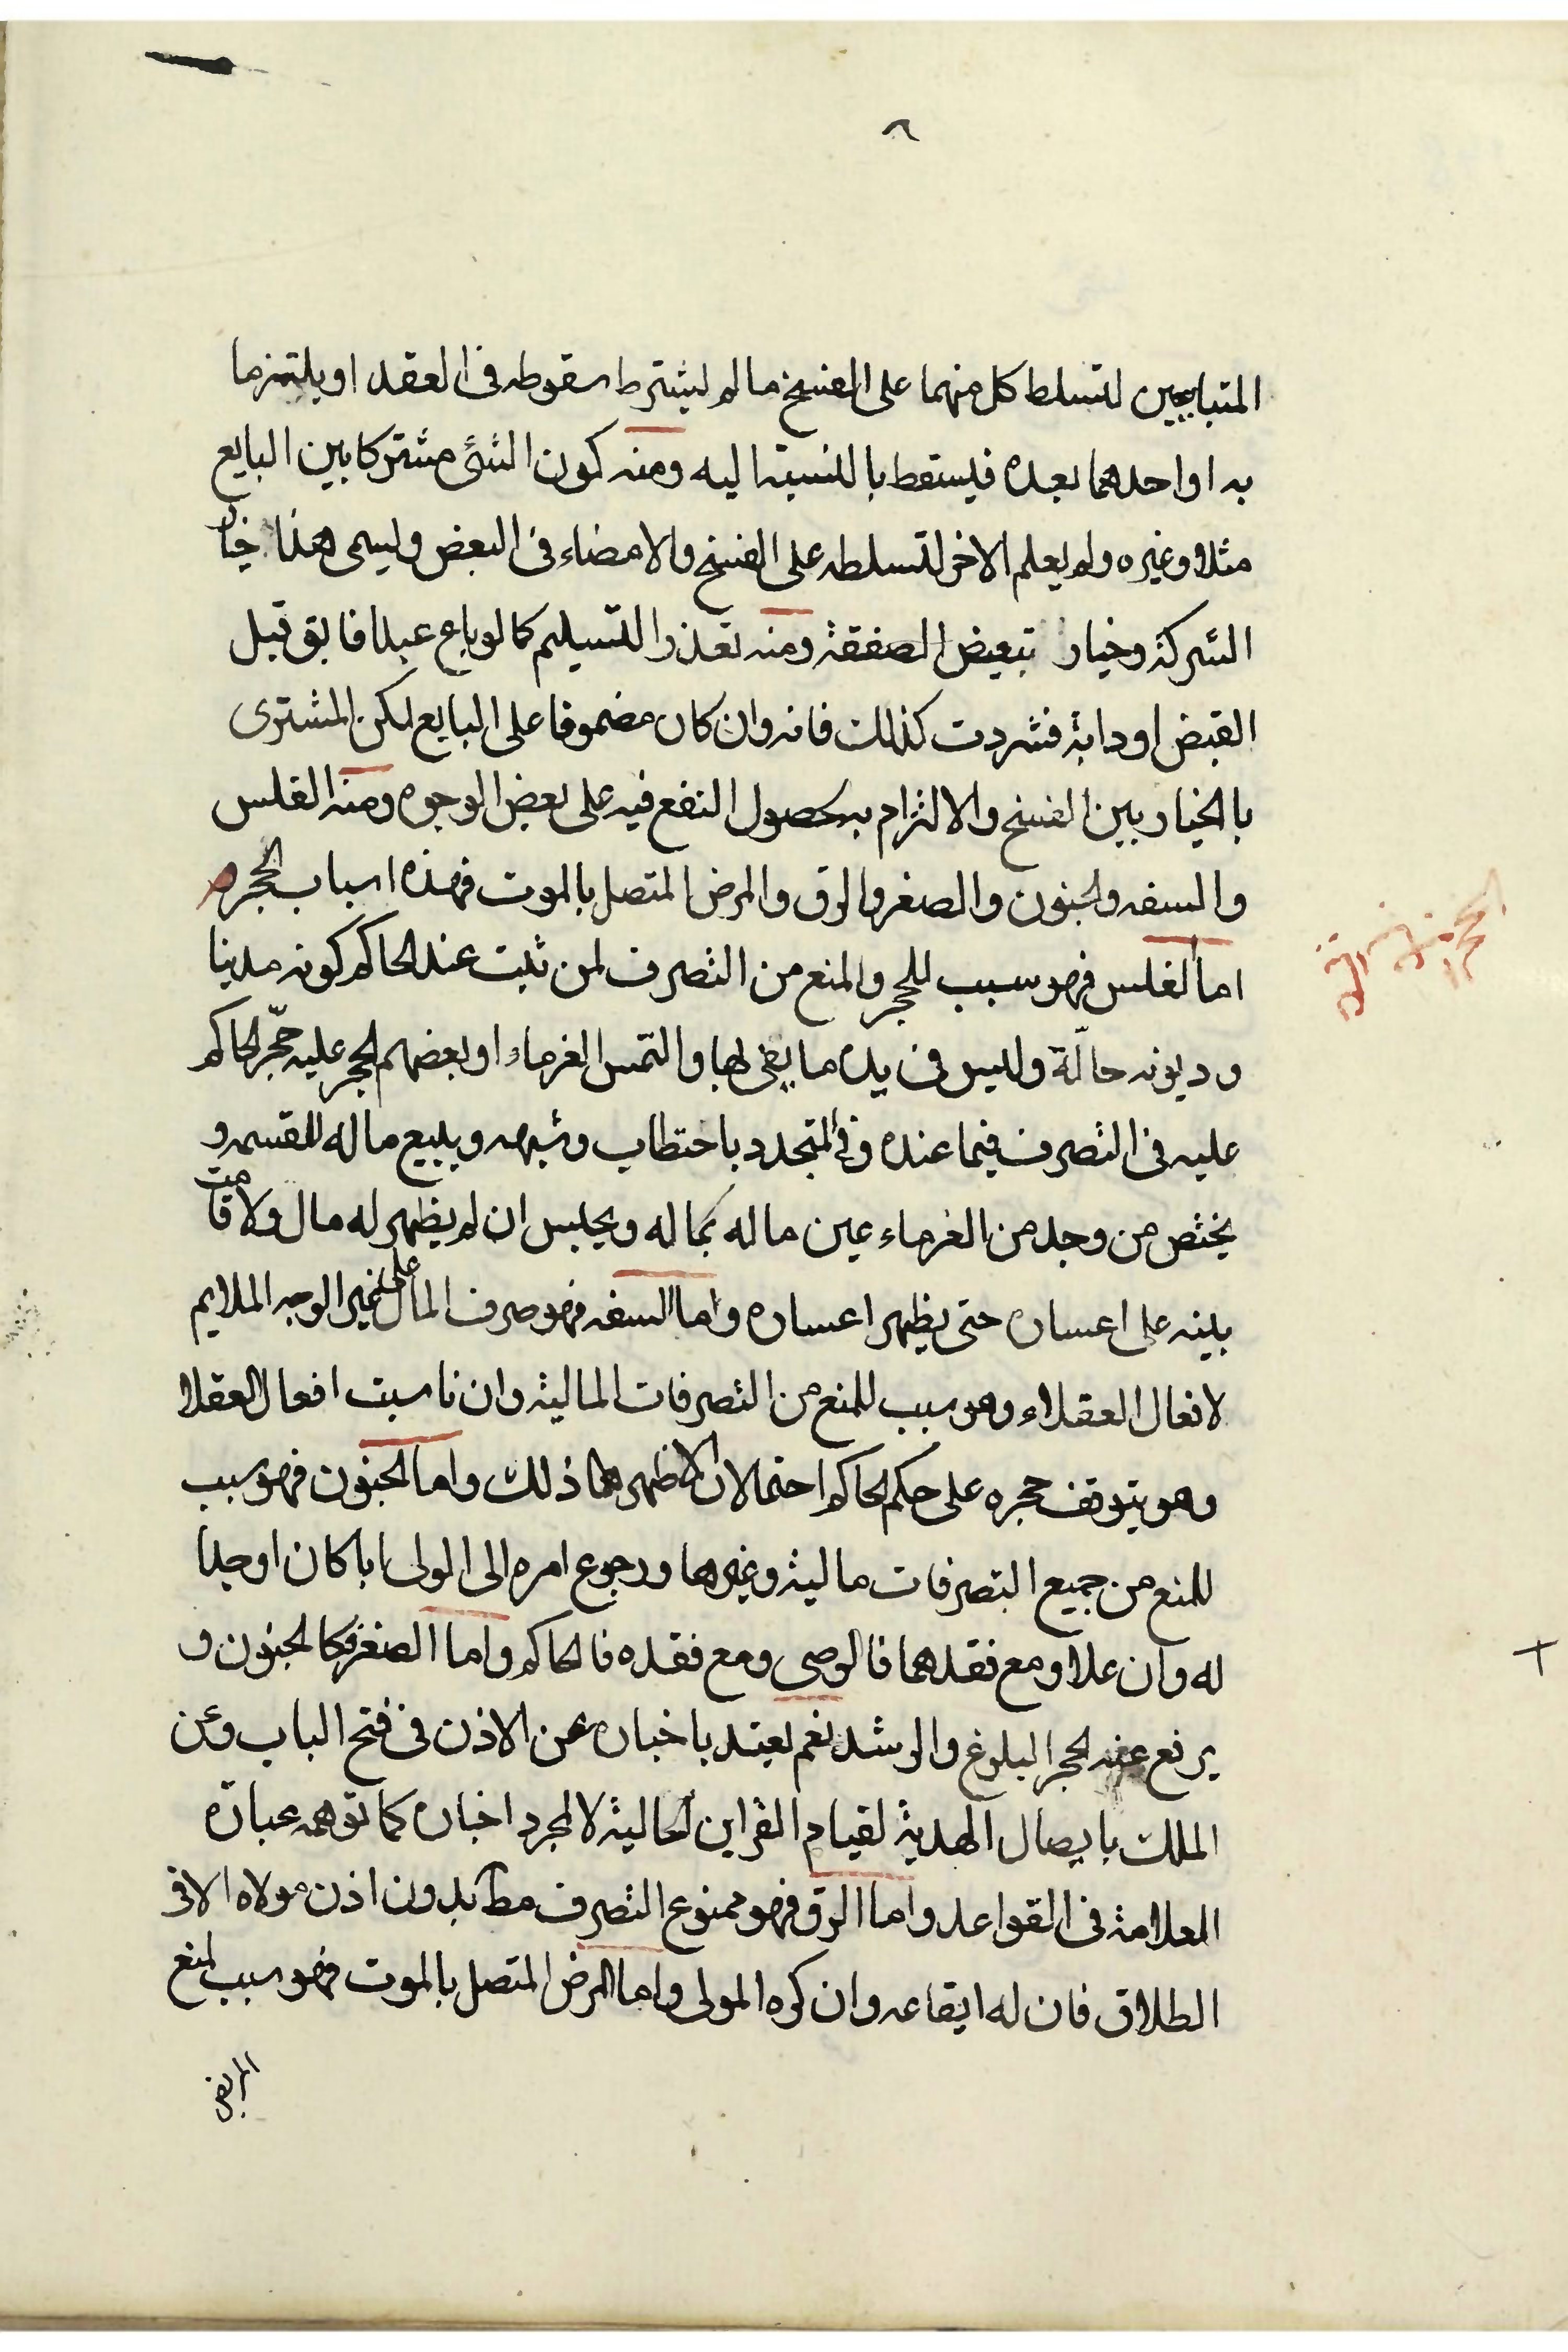 المتبايعين لتسلط كل منهما على الفسخ ما لم يشترط سقوطه فى العقد او يلتزما
به او احدهما بعده فيسقط بالنسبة اليه ومنه كون الشئ مشتركا بين البايع
مثلا وغيره ولم يعلم الاخر لتسلطه على الفسخ والامضاء فى البعض وليسمى هذا خيار
الشركة وخيار تبعيض الصفقة ومنه تعذر التسليم كما لو باع عبدا فابق قبل
القبض او دابة فشردت كذلك فانه وان كان مضمونا على البايع لكن المشترى
بالخيار بين الفسخ والالتزام به لحصول النفع فيه على بعض الوجوه ومنه الفلس
والسفه والجنون والصغر والرق والمرض المتصل بالموت فهذه اسباب الحجر
اما الفلس فهو سبب للحجر والمنع من التصرف لمن ثبت عند الحاكم كونه مدينا
وديونه حالّة وليس فى يده ما يفى بها والتمس الغرماء او بعضهم الحجر عليه حجّر الحاكم
عليه فى التصرف فيما عنده وفى المتجدد باحتطاب وشبهه ويبيع ماله للقسمه و
يختص من وجد من الغرماء عين ماله بماله ويحبس ان لم يظهر له مال ولا قامت
بينه على اعساره حتى يظهر اعساره واما السفه فهو صرف المال على غير الوجه الملايم
لافعال العقلاء وهو سبب للمنع من التصرفات المالية وان ناسبت افعال العقلا
وهو يتوقف حجره على حكم الحاكم احتمالان الاظهرهما ذلك واما الجنون فهو سبب
للمنع من جميع التصرفات مالية وغيرها ورجوع امره الى الولى ابا كان او جدا
له وان علا ومع فقدهما فالوصى ومع فقده فالحاكم واما الصغر فكالجنون و
يرفع عنه الحجر البلوغ والرشد نعم يعتد باخباره عن الاذن فى فتح الباب وعن
الملك بايصال الهدية لقيام القراين الحالية لا لمجرد اخباره كما توهمه عبارة
العلامة فى القواعد واما الرق فهو ممنوع التصرف مط بدون اذن مولاه الا فى
الطلاق فان له ايقاعه وان كره المولى واما المرض المتصل بالموت فهو سبب لمنع
المريض